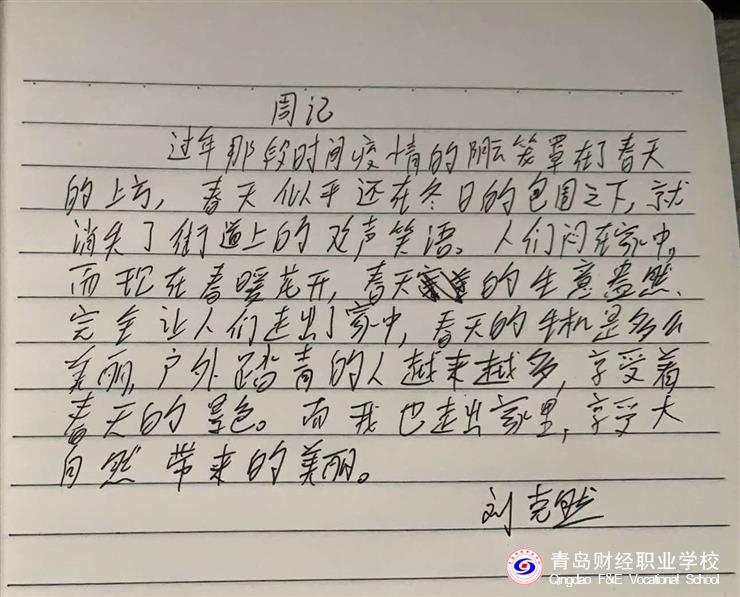 周记
过年那段时间疫情的阴云笼罩在了春天
的上方，春天似乎还在冬日的包围之下，就
消失了街道上的欢声笑语。人们闷在家中，
而现在春暖花开，春天的生意盎然，
完全让人们走出了家中，春天的生机是多么
美丽，户外踏青的人越来越多，享受着
春天的景色。而我也走出家里，享受大
自然带来的美丽。
刘克然
青岛财经职业学校
Qingdao F&E Vocational School